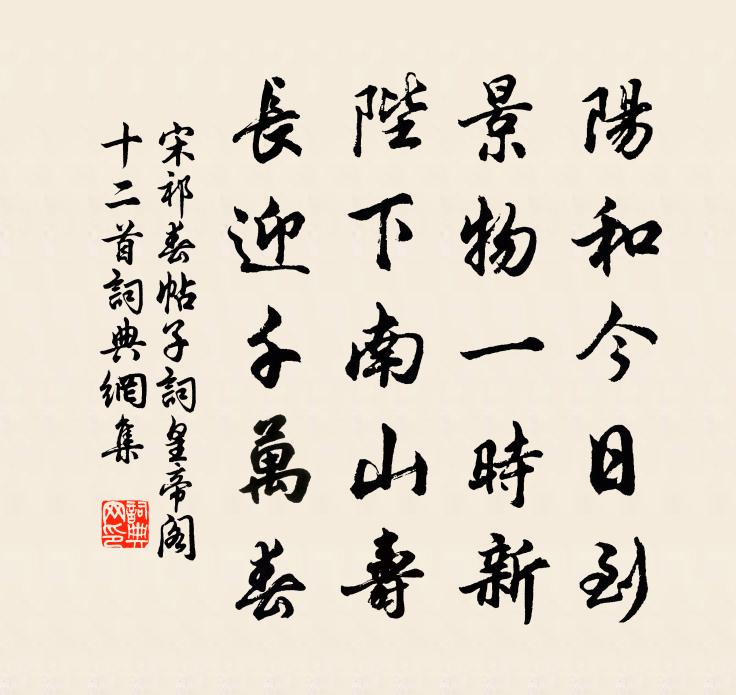 陽和今日到
景物一時新
陛下南山壽
長迎千萬春
宋祁春帖子詞皇帝閣
十二首詞典網集
詞典网印